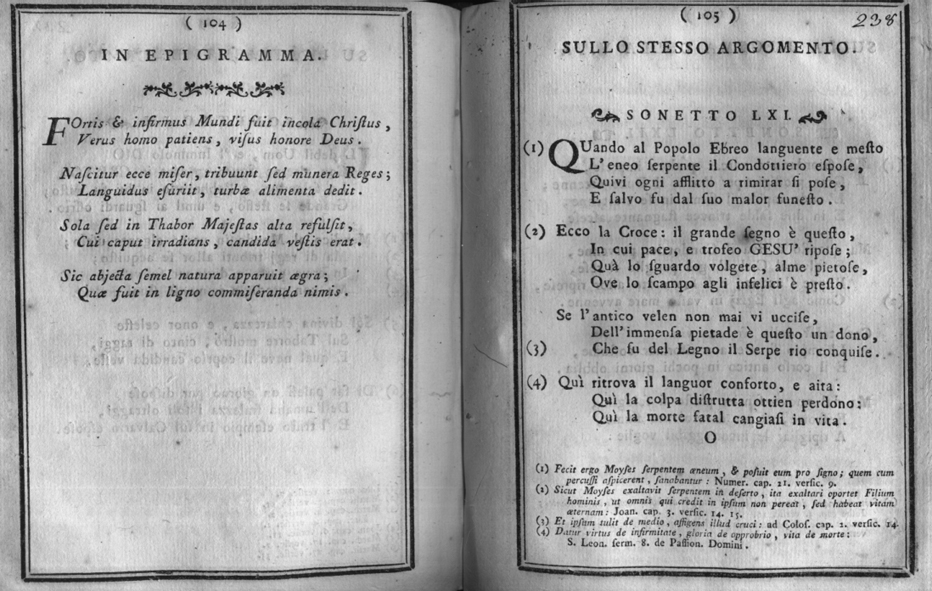 ( 104 )
IN EPIGRAMMA.
FOrtis & infirmus Mundi fuit incola Chriſtus ,
Verus homo patiens , viſus honore Deus .
Naſcitur ecce miſer , tribuunt ſed munera Reges ;
Languidus eſuriit , turbæ alimenta dedit .
Sola ſed in Thabor Majeſtas alta refulſit ,
Cui caput irradians , candida veſtis erat .
Sic abjecta ſemel natura apparuit ægra ;
Quæ fuit in ligno commiſeranda nimis .
( 105 )
238
SULLO STESSO ARGOMENTO.
SONETTO LXI.
(1) QUando al Popolo Ebreo languente e meſto
L' eneo ſerpente il Condottiero eſpoſe ,
Quivi ogni afflitto a rimirar ſi poſe ,
E ſalvo fu dal ſuo malor funeſto .
(2) Ecco la Croce : il grande ſegno è queſto ,
In cui pace , e trofeo GESU' ripoſe ;
Quà lo ſguardo volgete , alme pietoſe ,
Ove lo ſcampo agli infelici è preſto .
Se l' antico velen non mai vi ucciſe ,
Dell' immenſa pietade è queſto un dono ,
(3) Che ſu del Legno il Serpe rio conquiſe .
(4) Quì ritrova il languor conforto , e aita :
Quì la colpa diſtrutta ottien perdono :
Quì la morte fatal cangiaſi in vita .
O
(1) Fecit ergo Moyſes ſerpentem æneum , & poſuit eum pro ſigno ; quem cum
percuſſi aſpicerent , ſanabantur : Numer. cap. 21. verſic. 9.
(2) Sicut Moyſes exaltavit ſerpentem in deſerto , ita exaltari oportet Filium
hominis , ut omnis qui credit in ipſum non pereat , ſed habeat vitam
æternam : Joan. cap. 3. verſic. 14. 15.
(3) Et ipſum tulit de medio , affigens illud cruci : ad Coloſ. cap. 2. verſic. 14.
(4) Datur virtus de infirmitate , gloria de opprobrio , vita de morte :
S. Leon. ſerm. 8. de Paſſion. Domini .